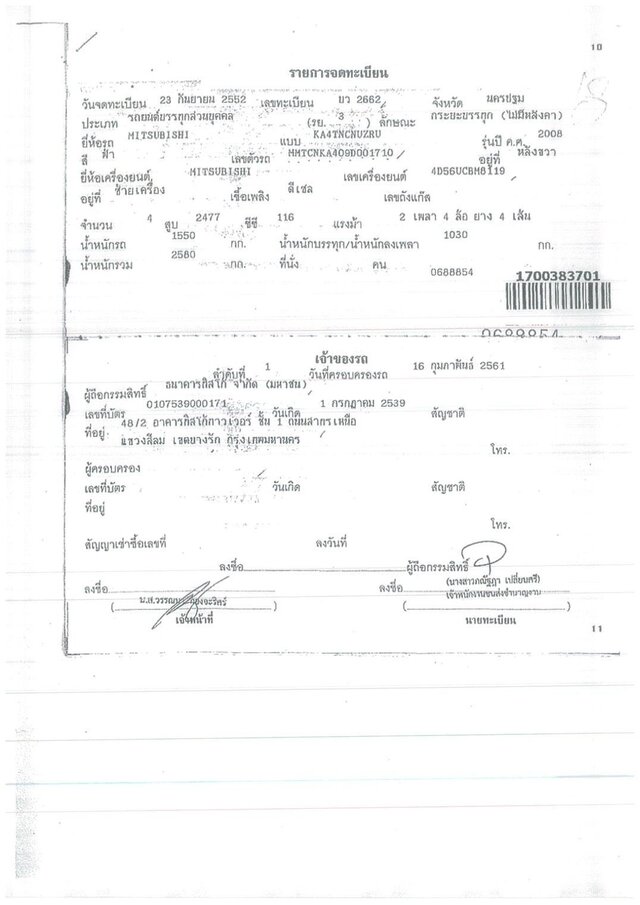 10
รายการจดทะเบียน
วันจดทะเบียน 23 กันยายน 2552 เลขทะเบียน ยว 2662 จังหวัด นครปฐม
ประเภท รถยนต์บรรทุกส่วนบุคคล (รย. 3 ) ลักษณะ กระยะบรรทุก (ไม่มีหลังคา)
ยี่ห้อรถ MITSUBISHI แบบ KA4TNCNUZRU รุ่นปี ค.ศ. 2008
สี ฟ้า เลขตัวรถ MMTCNKA409D001710 อยู่ที่ หลังขวา
ยี่ห้อเครื่องยนต์ MITSUBISHI เลขเครื่องยนต์ 4D56UCBM8119
อยู่ที่ ซ้ายเครื่อง เชื้อเพลิง ดีเซล เลขถังแก๊ส
จำนวน 4 สูบ 2477 ซีซี 116 แรงม้า 2 เพลา 4 ล้อ ยาง 4 เส้น
น้ำหนักรถ 1550 กก. น้ำหนักบรรทุก/น้ำหนักลงเพลา 1030 กก.
น้ำหนักรวม 2580 กก. ที่นั่ง คน 0688854
1700383701
0688854
เจ้าของรถ
ลำดับที่ 1 วันที่ครอบครองรถ 16 กุมภาพันธ์ 2561
ผู้ถือกรรมสิทธิ์ ธนาคารทิสโก้ จำกัด (มหาชน)
เลขที่บัตร 0107539000171 วันเกิด 1 กรกฎาคม 2539 สัญชาติ
ที่อยู่ 48/2 อาคารทิสโก้ทาวเวอร์ ชั้น 1 ถนนสาทรเหนือ
แขวงสีลม เขตบางรัก กรุงเทพมหานคร
โทร.
ผู้ครอบครอง
เลขที่บัตร วันเกิด สัญชาติ
ที่อยู่
โทร.
สัญญาเช่าซื้อเลขที่ ลงวันที่
ลงชื่อ ผู้ถือกรรมสิทธิ์
ลงชื่อ ลงชื่อ (นางสาวภณัฐฎา เปลี่ยนศรี)
น.ส.วรรณ เจ้าพนักงานขนส่งชำนาญงาน
( ) ( )
เจ้าหน้าที่ นายทะเบียน
11